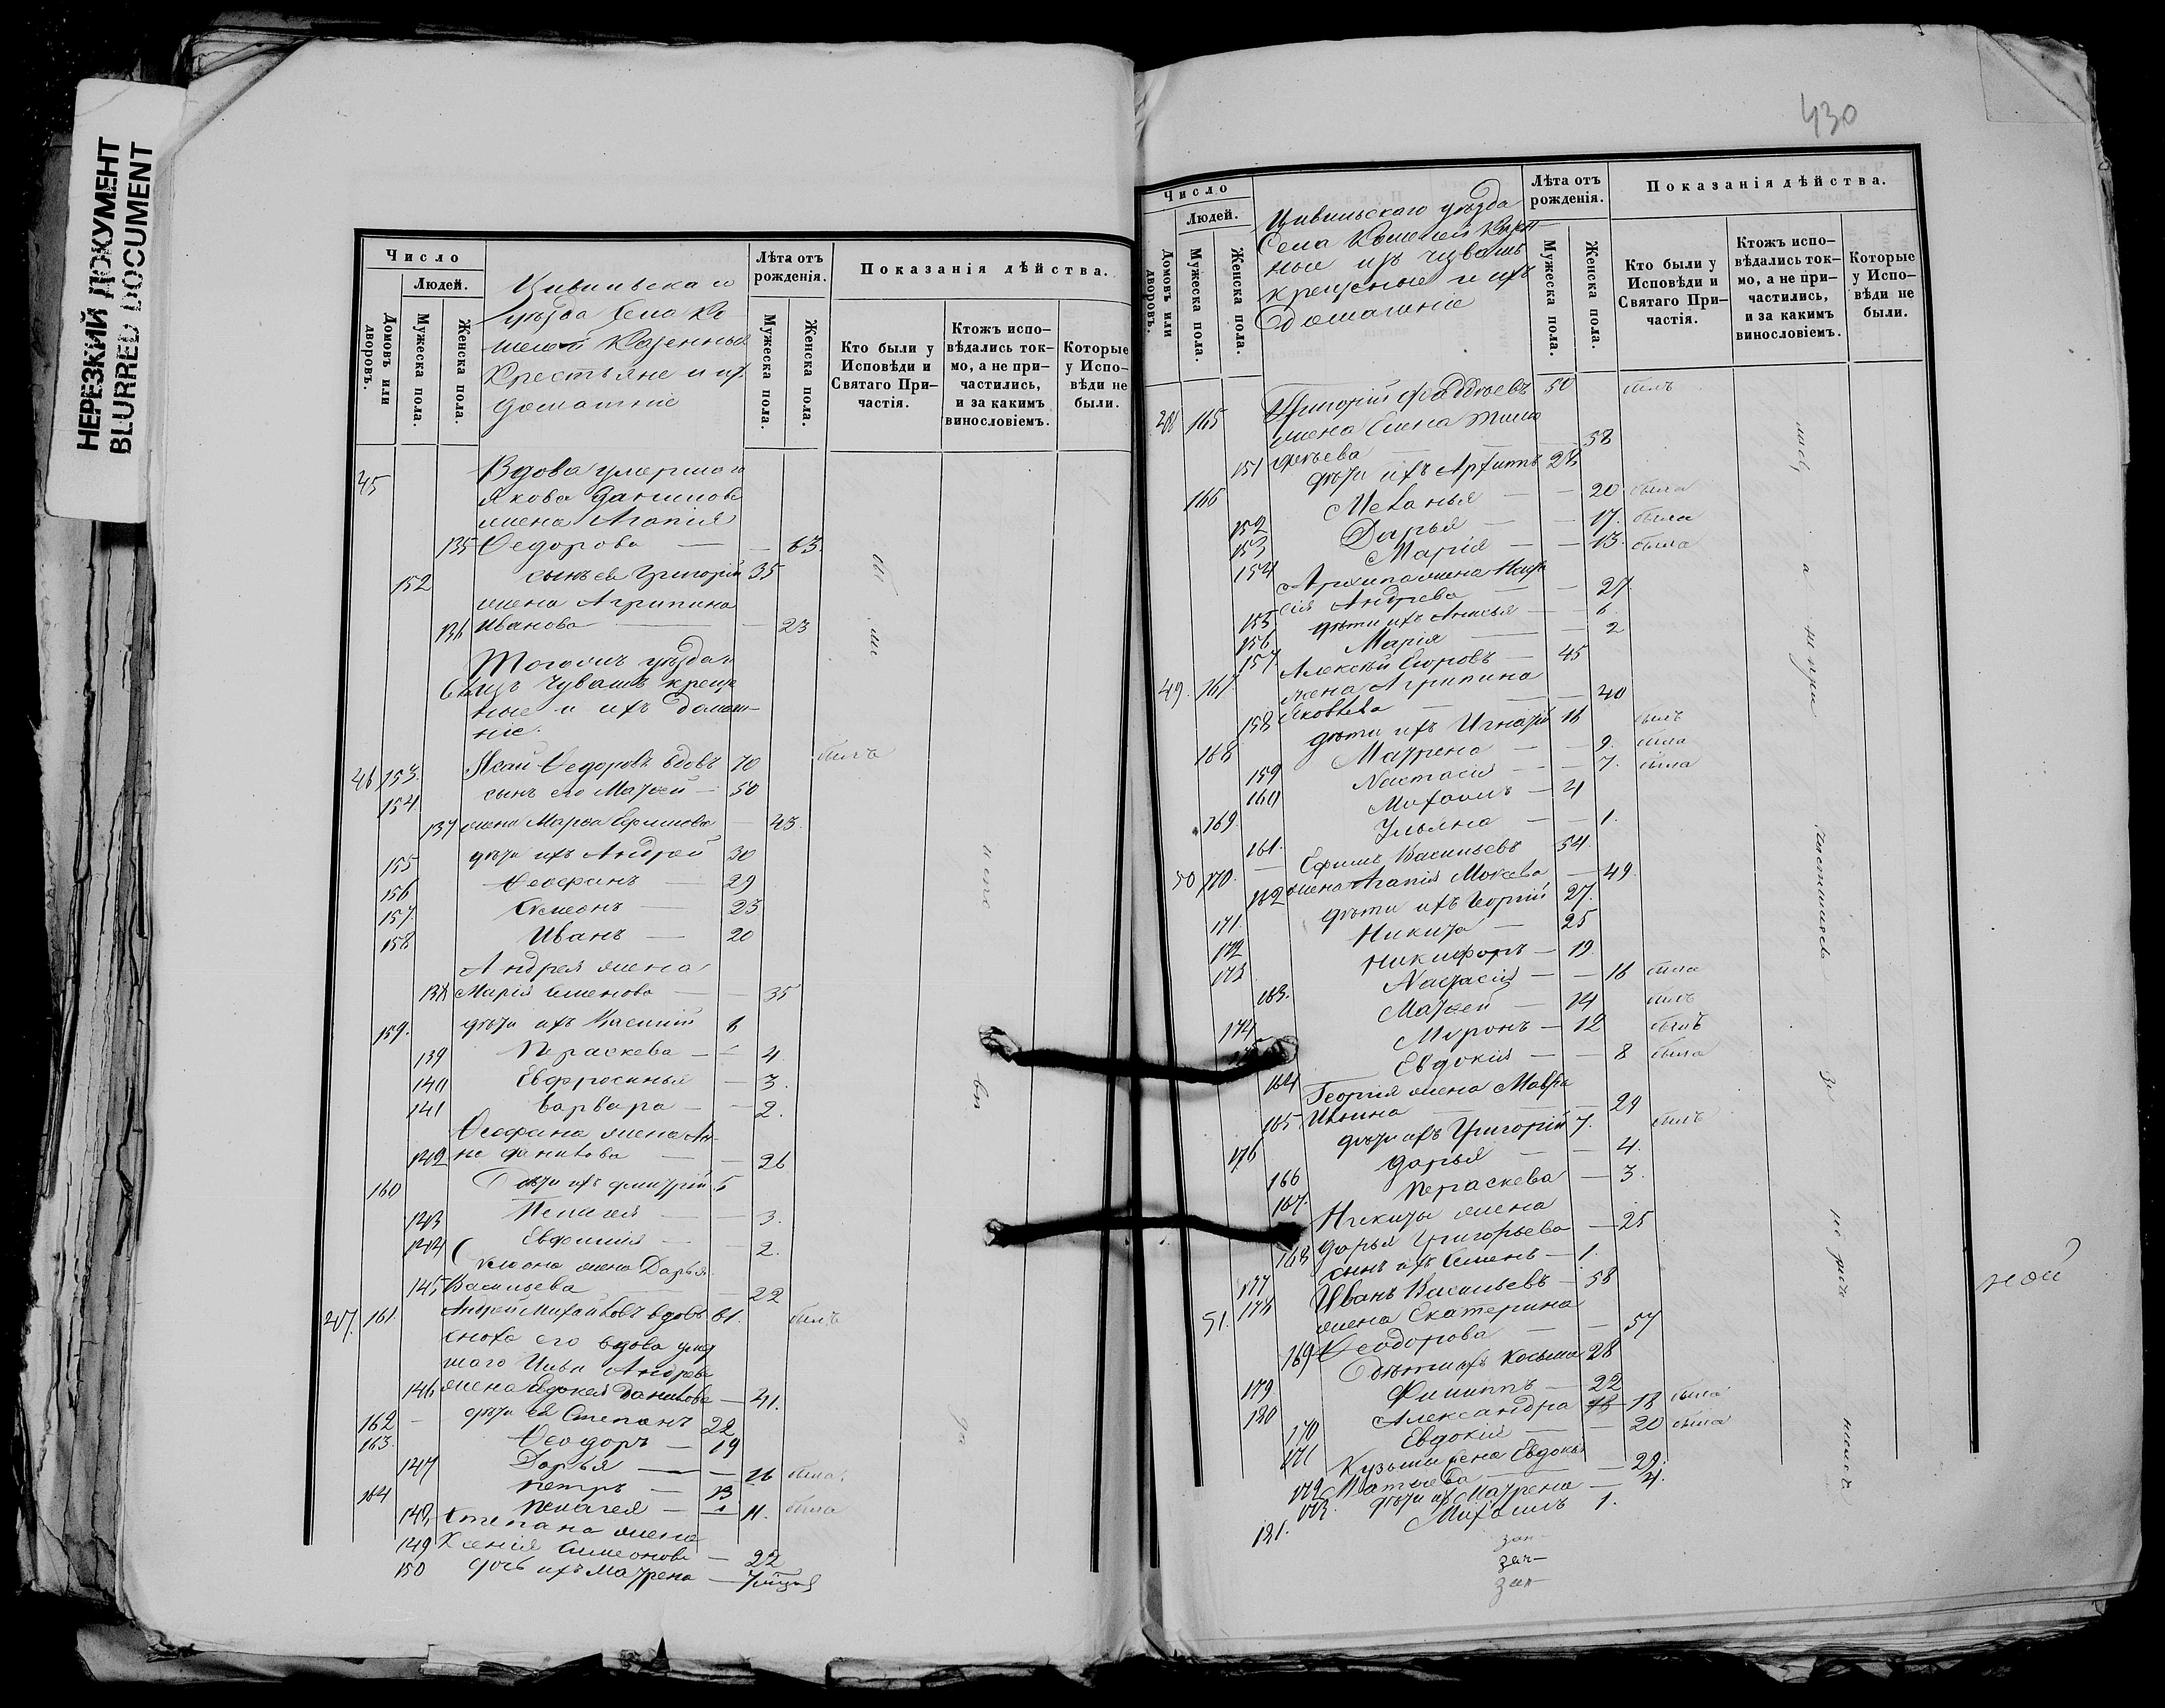 НЕРЕЗКИЙ ДОКУМЕНТ
BLURRED DOCUMENT
Число
Людей.
Домовъ или дворовъ.
Мужеска пола.
Женска пола.
Цивильскаго
уѣзда Села Ко
шелей Казенные
Крестьяне и их
домашніе
Лѣта отъ рожденія.
Мужеска пола.
Женска пола.
Показанія дѣйства.
Кто были у Исповѣди и Святаго При-частія.
Ктожъ испо-вѣдались ток-мо, а не при-частились, и за какимъ винословіемъ.
Которые у Испо-вѣди не были.
45 Вдова умершаго
Якова Данилова
жена Агапія
135 Ѳедорова — — 63
152 сынъ ея Григорій 35
жена Агрипина
136 Иванова — — 23
Тогожъ уѣзда и
села изъ чувашъ креще
ные и ихъ домаш-
ніе.
46 153 Исай Ѳедоровъ вдовъ 70 былъ
154 сынъ его Матѳей — 50
137 жена Марѳа Ефимова — 43.
155 дѣти ихъ Андрей 30
156 Ѳеофанъ — 29
157 Симеонъ — 23
158 Иванъ — 20
Андрея жена
138 Марія Семенова — — 35
159. дѣти ихъ Василій 6
139 Параскева — — 4.
140 Евфросинья — 3.
141 Варвара — — 2.
Ѳеофана жена Ан-
142 на Данилова — — 26
160 Дѣти ихъ Дмитрій 5
143 Пелагея — — 3.
144 Евфимія — — 2.
Симеона жена Дарья
145 Васильева — 22
47. 161. Андрей Михайловъ вдовъ 61. былъ
сноха его вдова умер
шаго Ильи Андреева
146 жена Евдокея Данилова — 41.
162 — дѣти ея Степанъ 22
163. Ѳеодоръ — 19
147 Дарья — — 16 была
164 Петръ — 13
148. Пелагея — — 11. была
Степана жена
149 Ксенія Симеонова — 22
150 дочь ихъ Матрена —
430
Число
Людей.
Домовъ или дворовъ.
Мужеска пола.
Женска пола.
Цивильскаго уѣзда
Села Кошелей Казен
ные изъ чувашъ
крещеные и ихъ
домашніе
Лѣта отъ рожденія.
Мужеска пола.
Женска пола.
Показанія дѣйства.
Кто были у Исповѣди и Святаго При-частія.
Ктожъ испо-вѣдались ток-мо, а не при-частились, и за какимъ винословіемъ.
Которые у Испо-вѣди не были.
48 165 Григорій Фаддѣевъ 50 былъ
жена Елена Тимо
151 фѣева — — 58
166 дѣти ихъ Архипъ 28
152 Меланья — — 20 была
153 Дарья — — 17. была
154 Марія — — 13. была
Архипа жена
155 Андреева — — 27
156 дѣти ихъ Анисья — — 6.
157. Марія — — 2
49. 167. Алексѣй Егоровъ — 45
жена Агрипина
158 Яковлева — — 40
168 дѣти ихъ Игнатій 16 былъ
159 Матрена — — 9. была
160 Настасія — — 7. была
169. Михаилъ — 4
161. Ульяна — — 1.
50 170. — Ефимъ Васильевъ 54.
162 жена Агапія Мокеева — 49.
171. дѣти ихъ Георгій 27.
172 Никита — 25
173 Никифоръ — 19.
163. Настасія — — 16 была
174 Матѳей — 14 былъ
Миронъ — 12 былъ
164 Евдокія — — 8 была
Георгія жена Мавра
165 Ильина — — 29
176 дѣти ихъ Григорій 7. былъ
166 Дарья — — 4.
167. Параскева — 3.
Никиты жена
168 Дарья Григорьева — 25
177 сынъ ихъ Семенъ — 1.
51. 178 Иванъ Васильевъ — 58
жена Екатерина
169 Ѳеодорова — — 57
179 Дѣти ихъ Косьма 28
180 Филиппъ — 22
170 Александра — 18 была
171 Евдокія — — 20 была
Кузьмы жена Евдокія
172 Матѳеева — — 29.
173. дѣти ихъ Матрена — 4.
181. Михаилъ 1.
ной